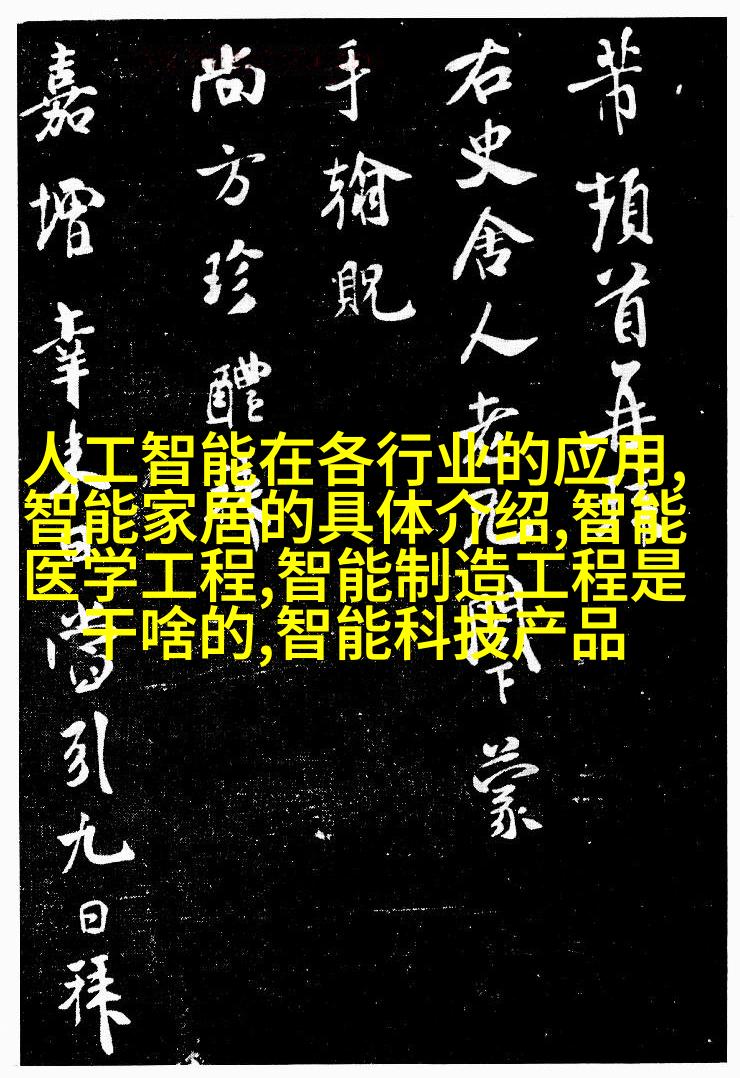 芾頓首再拜
右史舍人老兄閤下蒙
手翰貺
尚方珍醴
嘉增幸来日當引九日拜
人工智能在各行业的应用,
智能家居的具体介绍,智能
医学工程,智能制造工程是
干啥的,智能科技产品